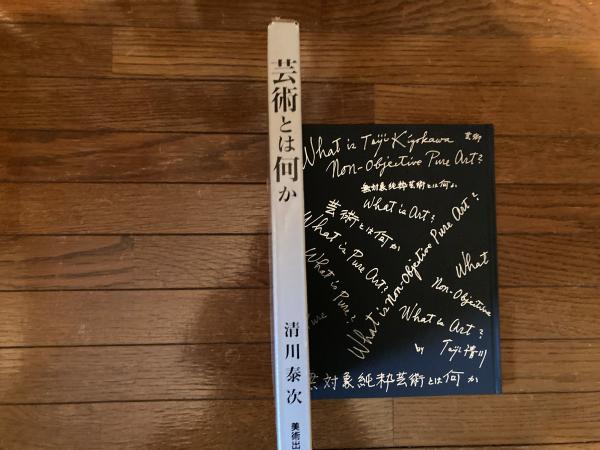 芸術とは何か
清川泰次
美術出
What is Taiji Kiyokawa
芸術
Non-Objective Pure Art?
無対象純粋芸術とは何か
What is Art?
芸術とは何か
What is Pure Art?
What is Non-Objective Pure Art?
What is Pure?
What
Non-Objective
Pure
What is Art?
by Taiji 清川
無対象純粋芸術とは何か